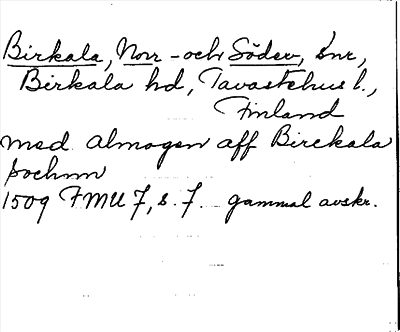 Birkala, Norr- och Söder, snr,
Birkala hd, Tavastehus l.,
Finland
med almogen aff Birckala
sochnn
1509 FMU 7, s. 7. gammal avskr.